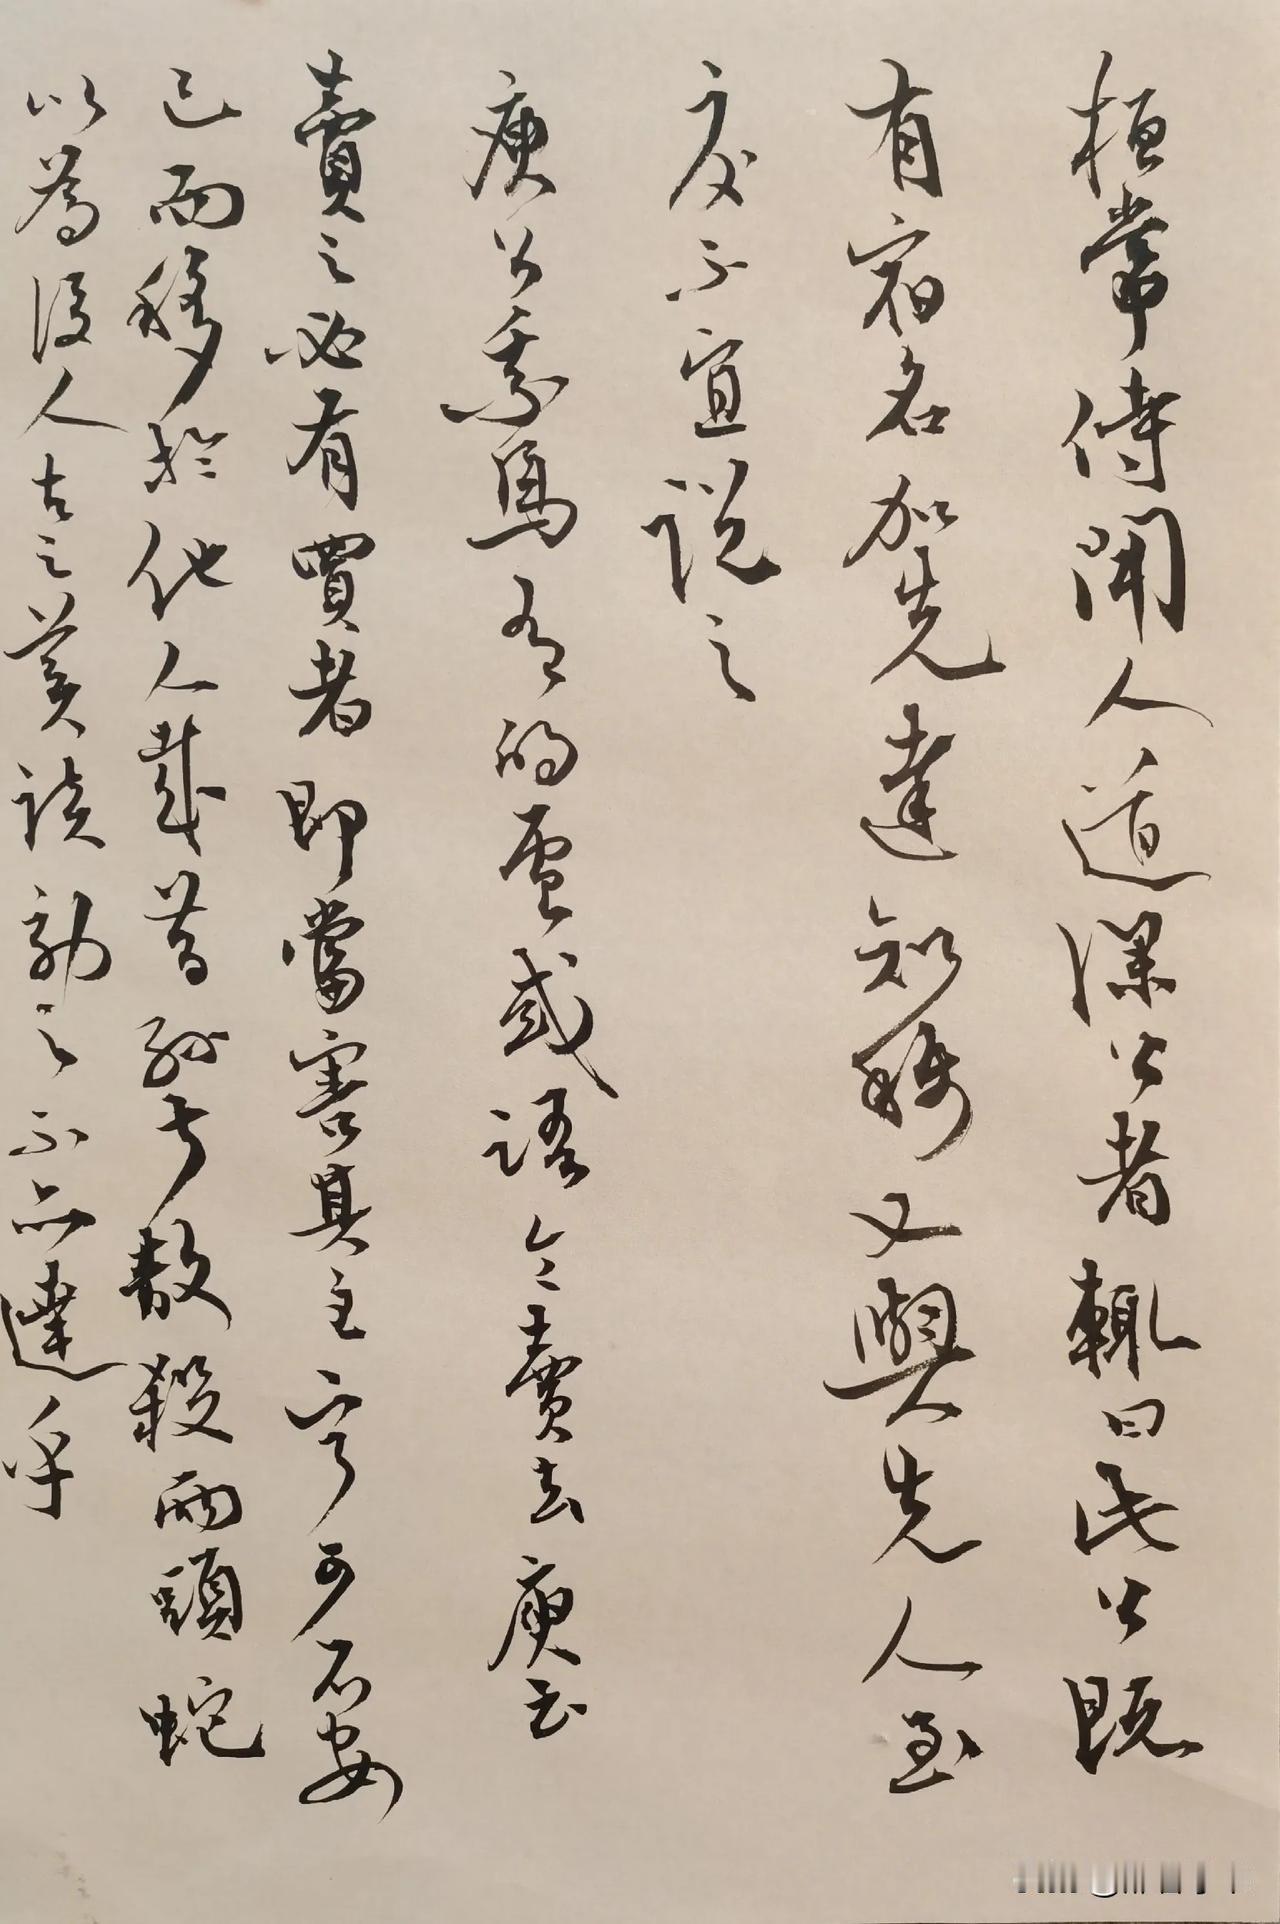 桓常侍聞人道深公者輒曰此公既
有宿名加先達知稱又與先人至
交不宜說之
庾公乘馬有的盧或語令賣去庾云
賣之必有買者即當害其主寧可不安
己而移於他人哉昔孫叔敖殺兩頭蛇
以為後人古之美談効之不亦達乎